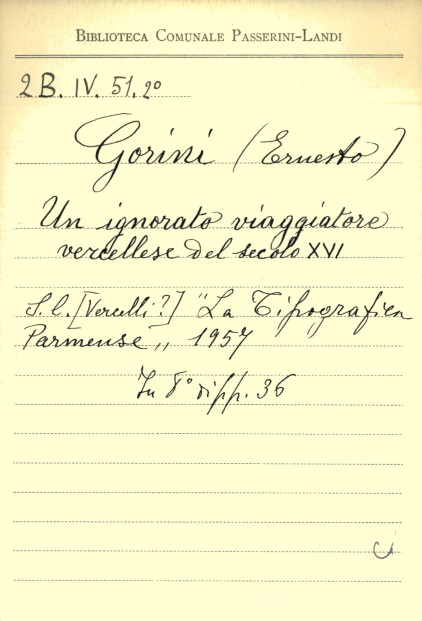 BIBLIOTECA COMUNALE PASSERINI-LANDI
2B. IV. 51. 2º
Gorini (Ernesto)
Un ignorato viaggiatore
vercellese del secolo XVI
S. l. [Vercelli?] "La Tipografica
Parmense", 1957
In 8º di pp. 36